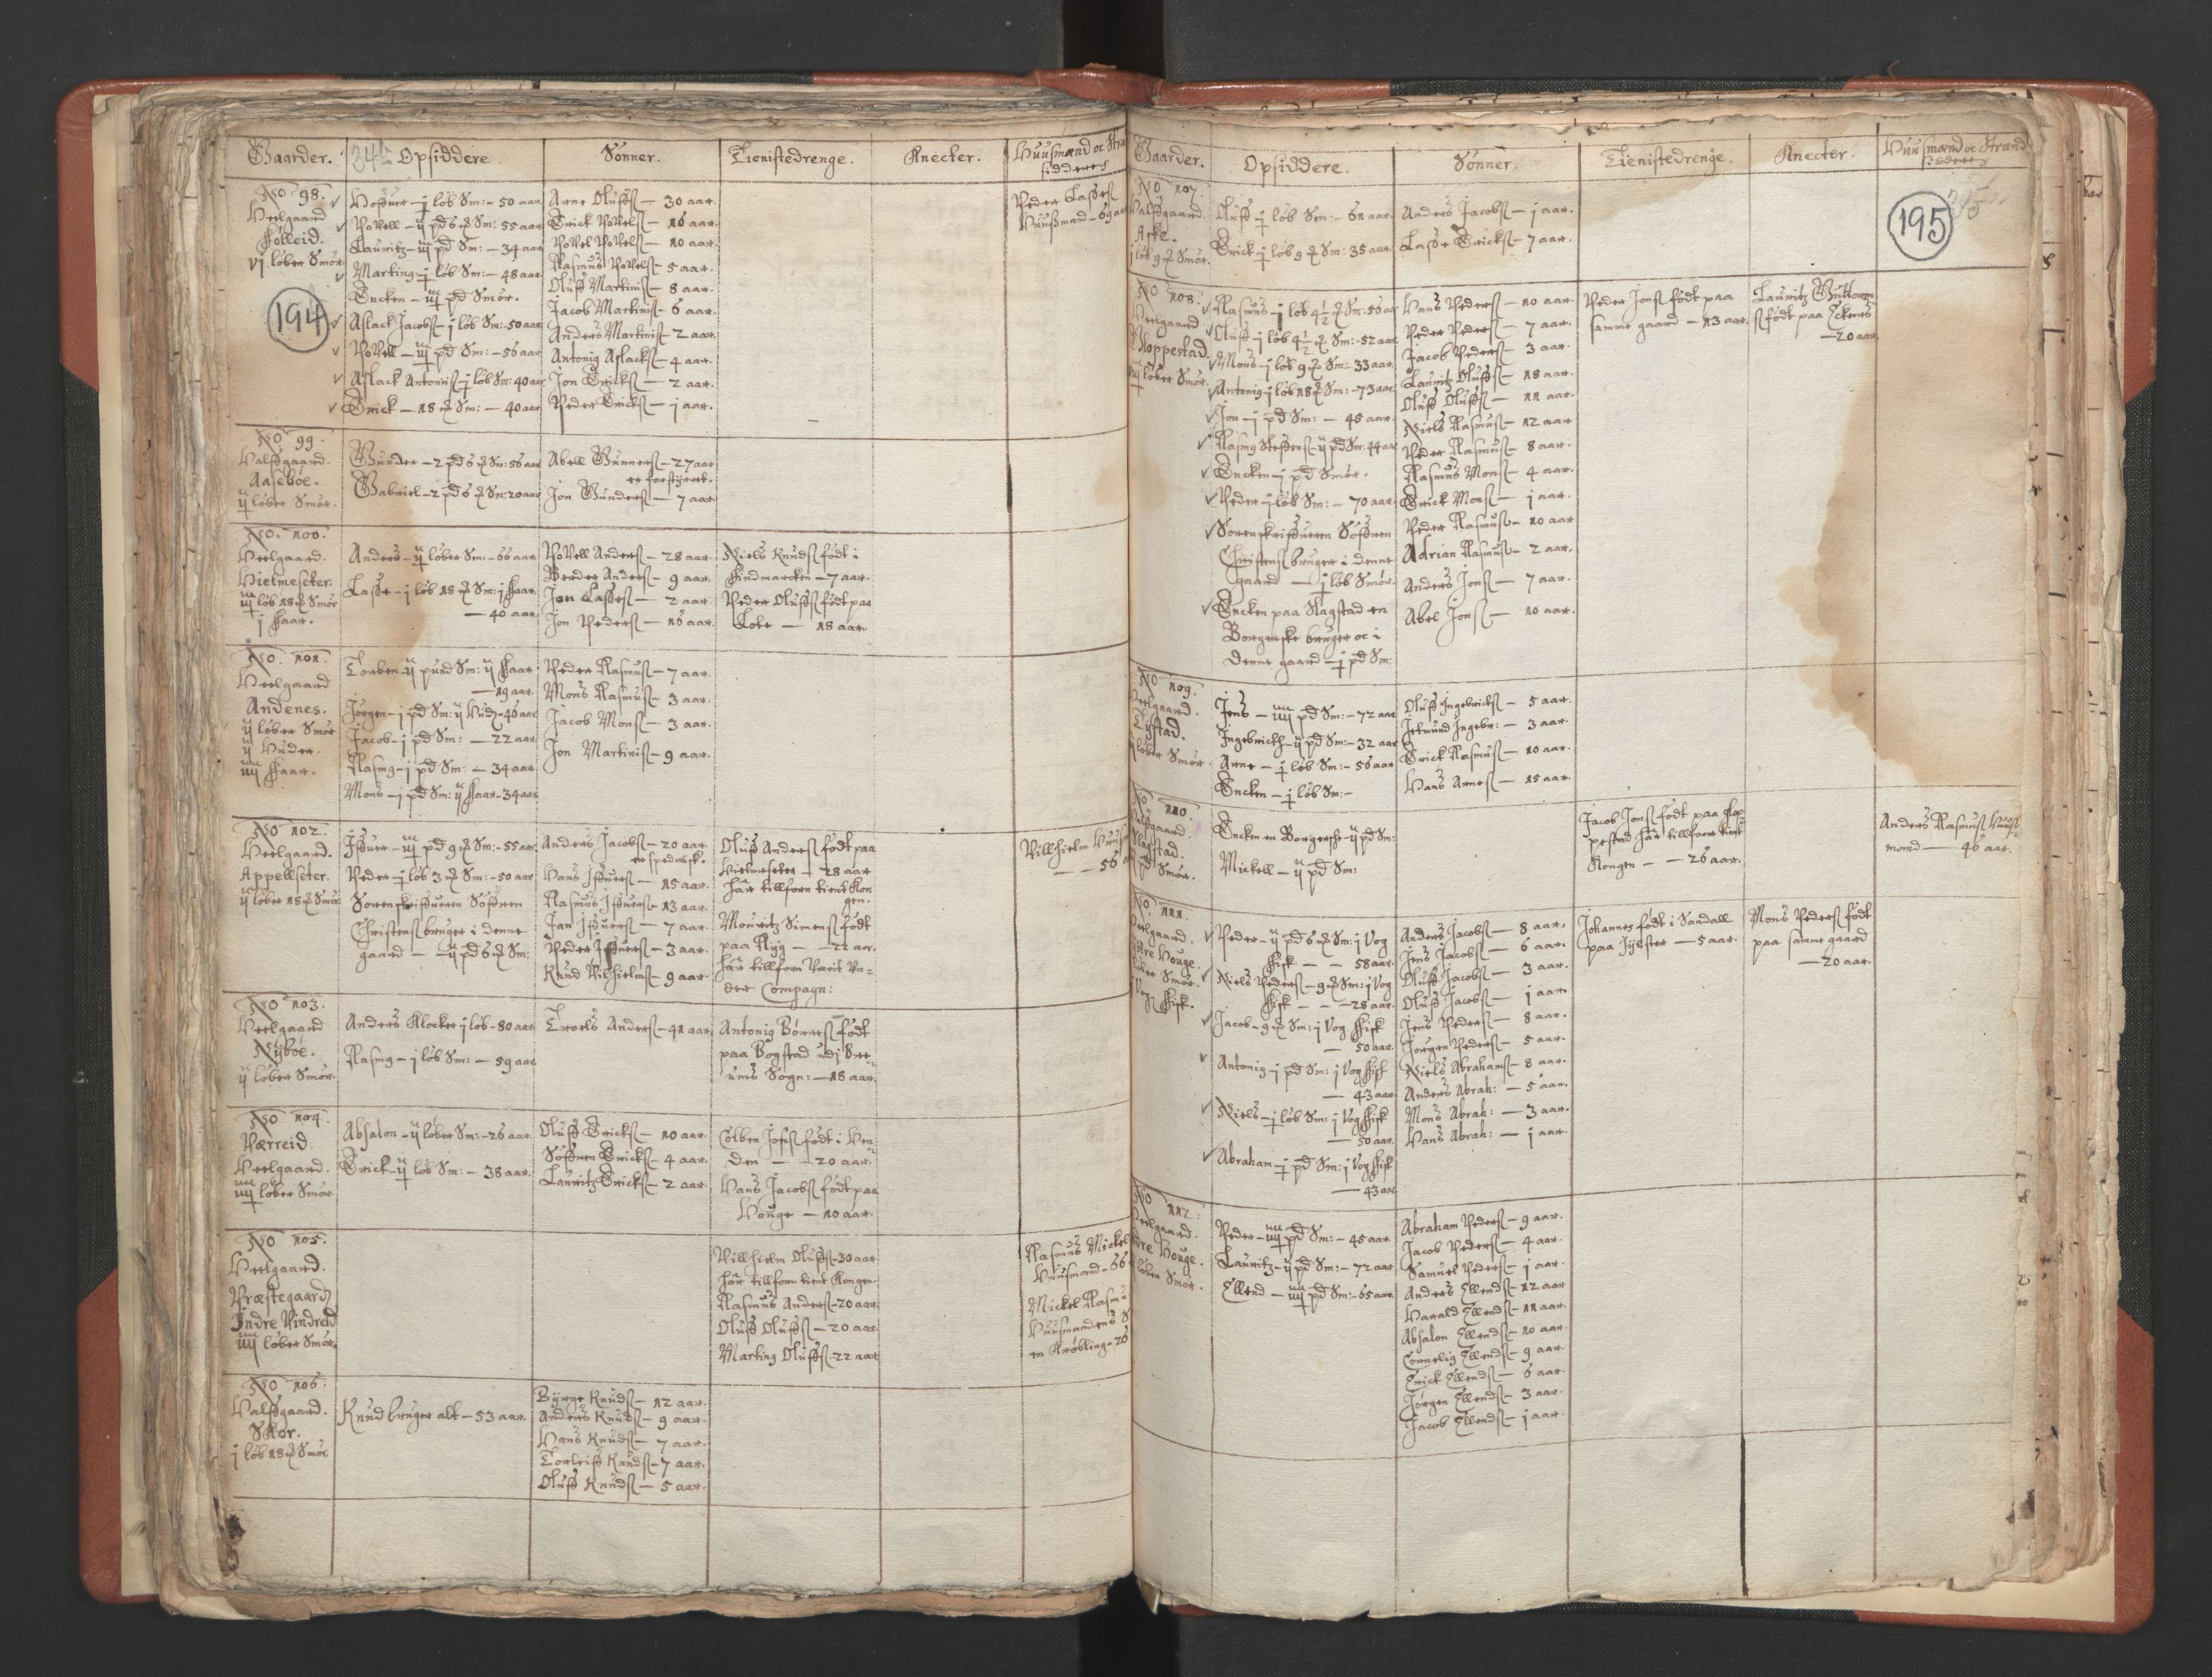 Gaarder. Opsiddere Sønner. Tienistedrenge. Knecter. Huusmænd oc Stra
sidderes
No 98.
Heelgaard
Følleid.
vj løber Smør
194
Lauritz
Marting - j løb Sm: - 48 aar
Encken
pd Smør.
Aslack Jacobs - j løb Sm: - 50 aar
pd Sm: - 56 aar
Aslack Antonis - j løb Sm: 40 aar
Erick - 18 Sm: - 40 aar
Arne Oluffs - 30 aar.
Erick Povels - 16 aar.
Povel Povels - 10 aar.
Rasmus Povels - 5 aar.
Oluff Martinis - 8 aar.
Jacob Martinis - 6 aar.
Anders Martinis - 2 aar.
Antonig Aslacks - 4 aar.
Jon Ericks - 2 aar.
Peder Ericks - j aar.
Peder Lasses
Huusmand - 69 aar
No 99.
Halffgaard.
Aasebøe.
ij løber Smør.
Gunder - 2 pd 6 Sm: 56 aar
Gabriel - 2 pd 6 Sm: 20 aar
Abell Gunners - 27 aar
Jon Gunders - 7 aar
No. 100.
Heelgaard.
Hielmeseter.
løb 18 Smør
j Faar.
Anders - ij løber Sm: - 66 aar
Lasse - j løb 18 Sm: j Faar
- 40 aar
Povell Anders - 28 aar.
Peder Anders - 9 aar.
Jon Lasses - 2 aar.
Jon Peders - 16 aar.
Niels Knuds født i
Findmarcken - 7 aar.
Peder Oluffs født paa
Lote - 18 aar.
No. 101.
Heelgaard
Andenes.
ij løber Smør
ij Huder.
Faar.
Torben - ij pund Sm: ij Faar
- 19 aar.
Jørgen - j pd Sm: ij Hud - 46 aar
Jacob - j pd Sm: - 22 aar
Rasmg - j pd Sm: - 34 aar
Mons - j pd Sm: ij Faar - 34 aar
Peder Rasmus - 7 aar.
Mons Rasmus - 3 aar.
Jacob Mons - 3 aar.
Jon Martinis - 9 aar.
No 102.
Heelgaard.
Appellseter.
ij løber 18 Smør
Iffuer
pd 9 Sm: - 55 aar
Peder - j løb 3 Sm: - 50 aar
Sorenskriffueren Søffren
Christens bruger i denne
gaard - ij pd 6 Sm:
Anders Jacobs - 20 aar.
er spedalsk.
Hans Iffuers - 15 aar.
Rasmus Iffuers - 13 aar.
Jan Iffuers - 7 aar.
Peder Iffuers - 3 aar.
Knud Vilhielms - 9 aar.
Oluff Anders født paa
Hielmeseter - 28 aar
har tillforn tient Kon
gen.
Mouritz Simens født
paa Ryg - 22 aar.
har tillforn Værit Un=
der Compagn:
Villhielm Huus
- 56
No 103.
Heelgaard
Nybøe.
ij løber Smør.
Anders Klocker j løb - 80 aar
Rasmg - j løb Sm: - 59 aar
Troels Anders - 41 aar
Antonig Børres født
paa Bøgstad udj Bre=
ums Sogn: - 18 aar.
No 104.
Værreid
Heelgaard.
løber Smør
Absalon - ij løber Sm: - 26 aar.
Erick - ij løb Sm: - 38 aar.
Oluff Ericks - 10 aar.
Søffren Ericks - 4 aar.
Lauritz Ericks - 2 aar.
Hans Jacobs født paa
Houge - 10 aar.
No 105.
Heelgaard.
Præstegaard
Indre Vindreid
løber Smør.
Villhielm Oluffs - 30 aar
har tillforn tient Kongen.
Rasmus Anders - 20 aar.
Oluff Oluffs - 20 aar.
Marting Oluffs - 22 aar
Rasmus Mickel
Huusmand - 66
Mickel Rasmu
Huusmandens S
en Krøbling - 26
No 106.
Halffgaard.
Skor.
j løb 18 Smør
Knud bruger alt - 53 aar.
Byrge Knuds - 12 aar.
Anders Knuds - 9 aar.
Hans Knuds - 7 aar.
Torleiff Knuds - 7 aar.
Oluff Knuds - 5 aar.
Gaarder. Opsiddere. Sønner. Tienistedrenge. Knecter. Huusmænd oc Strand
sidderes
195
No 107.
Halffgaard.
Aske.
j løb 9 Smør.
Oluff - j løb Sm: - 61 aar
Erick - j løb 9 Sm: 35 aar
Anders Jacobs - j aar.
Lasse Ericks - 7 aar.
No 108.
Heelgaard
Kloppestad.
løber Smør.
Rasmus - j løb 4 1/2 Sm: 56 aar
Oluff - j løb 4 1/2 Sm: - 52 aar
Mons - j løb 9 Sm: - 33 aar
Antonig - j løb 18 Sm: - 73 aar
Jon - j pd Sm: - 45 aar.
Rasmg Steffens - ij pd Sm: 44 aar
Encken - j pd Smør.
Peder - j løb Sm: - 70 aar
Sorenskriffueren Søffren
Christens bruger i denne
gaard - j løb Smør.
Encken paa Slagstad en
Borgerske bruger oc i
denne gaard - j pd Sm:
Hans Peders - 10 aar.
Peder Peders - 7 aar.
Jacob Peders - 3 aar.
Lauritz Oluffs - 18 aar.
Oluff Oluffs - 11 aar.
Niels Rasmus - 12 aar
Peder Rasmus - 8 aar.
Rasmus Mons - 4 aar.
Erick Mons - j aar.
Peder Rasmus - 10 aar
Adrian Rasmus - 2 aar.
Anders Jons - 7 aar.
Abel Jons - 10 aar.
Peder Jons født paa
samme gaard - 13 aar.
Lauritz Guttorm
s født paa Eckenes
- 20 aar
No 109.
Heelgaard.
Tystad.
løber Smør
Jens
pd Sm: - 72 aar
Ingebrickt - ij pd Sm: - 32 aar
Arne - j løb Sm: - 56 aar
Encken - j løb Sm: -
Oluff Ingebricks - 5 aar.
Jetmund Ingebr: - 3 aar.
Erick Rasmus - 10 aar.
Hans Arnes - 15 aar.
No 110.
Halffgaard.
Slagstad.
pd Smør.
Encken en Borgerske - ij pd Sm:
Mickell - ij pd Sm:
Jacob Jons født paa Klop
pestad har tillforn tient
Kongen - 26 aar.
Anders Rasmus Huus=
mand - 40 aar.
No. 111.
Heelgaard.
Houge.
løber Smør.
j Vog Fisk.
Peder - ij pd 6 Sm: j Vog
Fisk - 58 aar.
Niels Peders - 9 Sm: j Vog
Fisk - 28 aar.
Jacob - 9 Sm: j Vog Fisk
- 50 aar.
Antonig - j pd Sm: j Vog Fisk
- 43 aar
Niels - j løb Sm: j Vog Fisk
- 50 aar.
Abraham - j pd Sm: j Vog Fisk
- 43 aar
Anders Jacobs - 8 aar.
Jens Jacobs - 6 aar.
Oluff Jacobs - 3 aar.
Oluff Jacobs - j aar.
Jens Peders - 8 aar.
Jørgen Peders - 5 aar.
Niels Abrahams - 8 aar.
Anders Abrah: - 5 aar.
Mons Abrah: - 3 aar.
Hans Abrah: - j aar.
Johannes født i Sandall
- 5 aar.
Mons Peders født
paa samme gaard
- 20 aar.
No 112.
Heelgaard.
Houge.
løber Smør.
Peder
pd Sm: - 45 aar
Lauritz - ij pd Sm: - 72 aar
Ellend
pd Sm: - 65 aar
Abraham Peders - 9 aar.
Jacob Peders - 4 aar.
Samuel Peders - j aar.
Anders Ellends - 12 aar
Harald Ellends - 11 aar.
Absalon Ellends - 10 aar.
Cornelig Ellends - 9 aar.
Erick Ellends - 6 aar.
Jørgen Ellends - 3 aar.
Jacob Ellends - j aar.